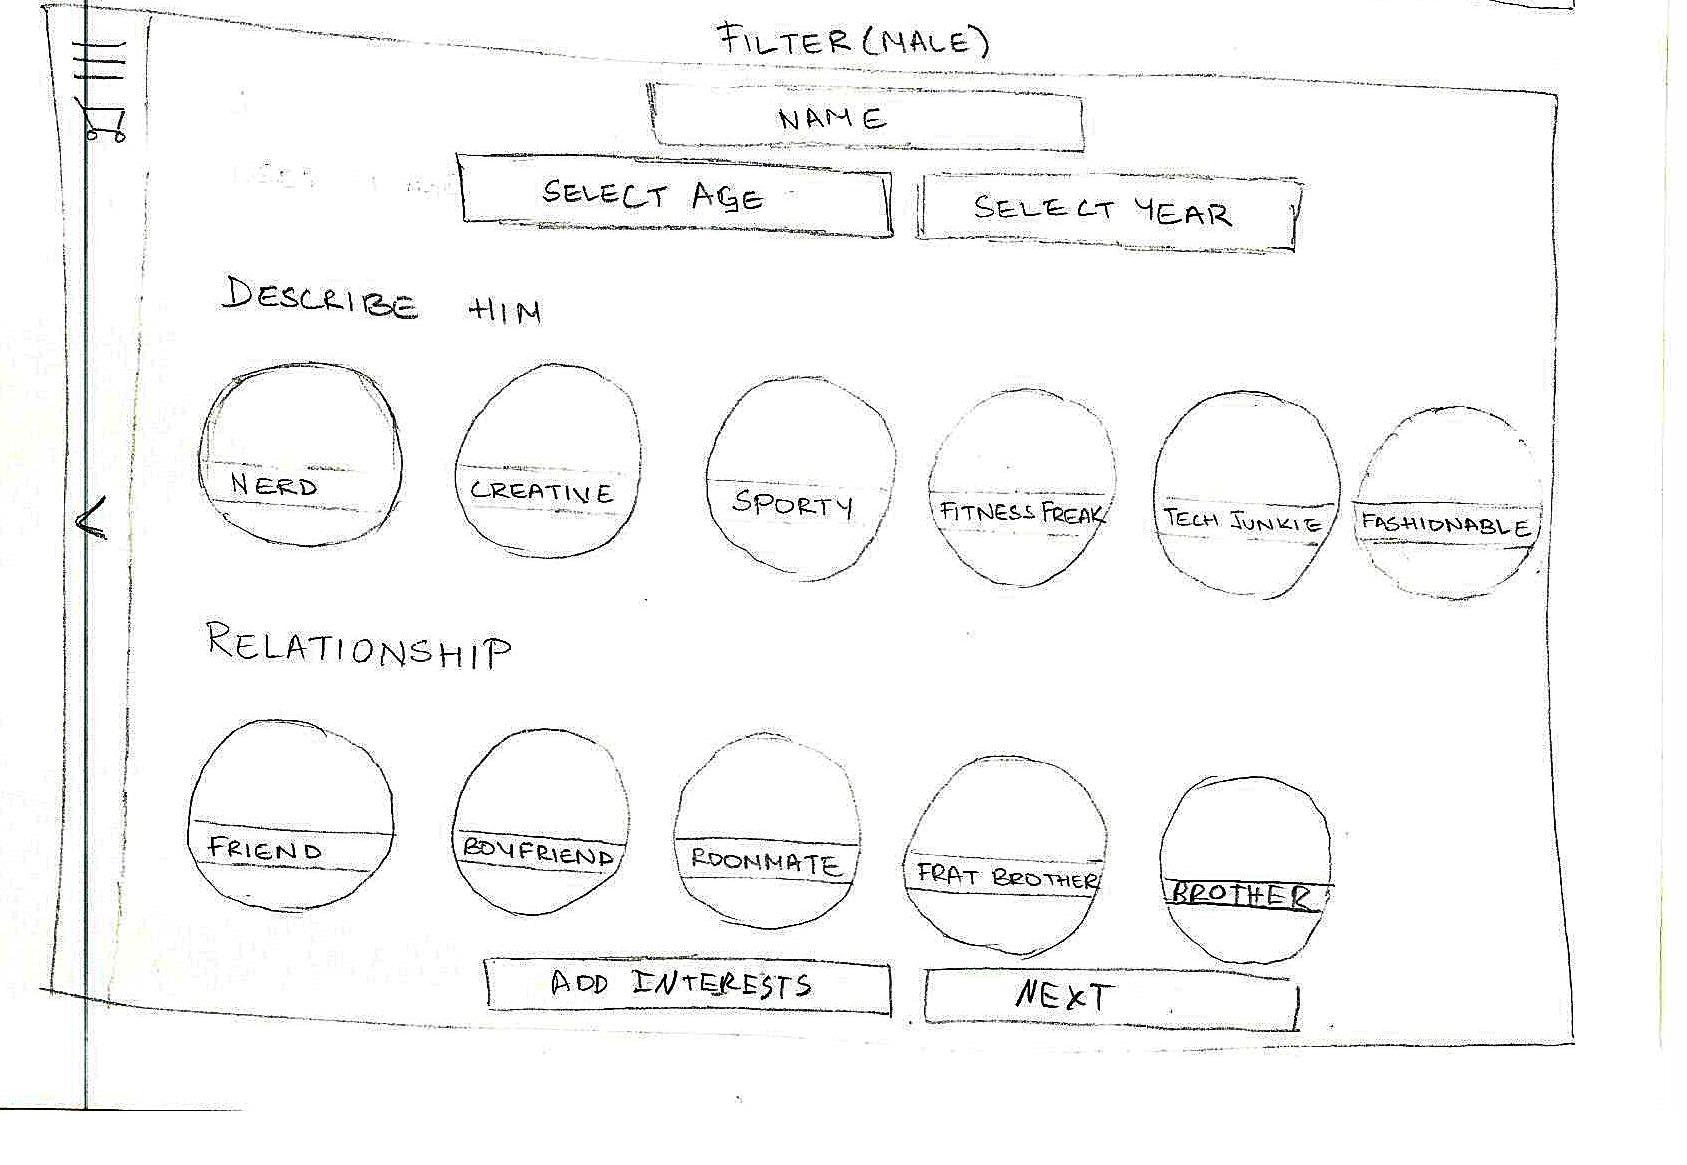 FILTER (MALE)
NAME
SELECT AGE
SELECT YEAR
DESCRIBE HIM
NERD
CREATIVE
SPORTY
FITNESS FREAK
TECH JUNKIE
FASHIONABLE
RELATIONSHIP
FRIEND
BOYFRIEND
ROOMMATE
FRAT BROTHER
BROTHER
ADD INTERESTS
NEXT